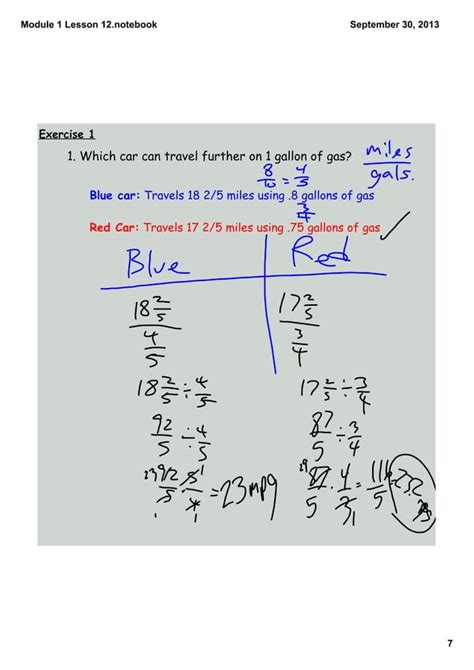 Module 1 Lesson 12.notebook
September 30, 2013
Exercise 1
1. Which car can travel further on 1 gallon of gas?
miles/gals.
8/10 = 4/5
Blue car: Travels 18 2/5 miles using .8 gallons of gas
3/4
Red Car: Travels 17 2/5 miles using .75 gallons of gas ✓
Blue
Red
18 2/5 / 4/5
17 2/5 / 3/4
18 2/5 ÷ 4/5
17 2/5 ÷ 3/4
92/5 ÷ 4/5
87/5 ÷ 3/4
92/5 · 5/4 = 23 mpg
29 87/5 · 4/3 1 = 116/5
7